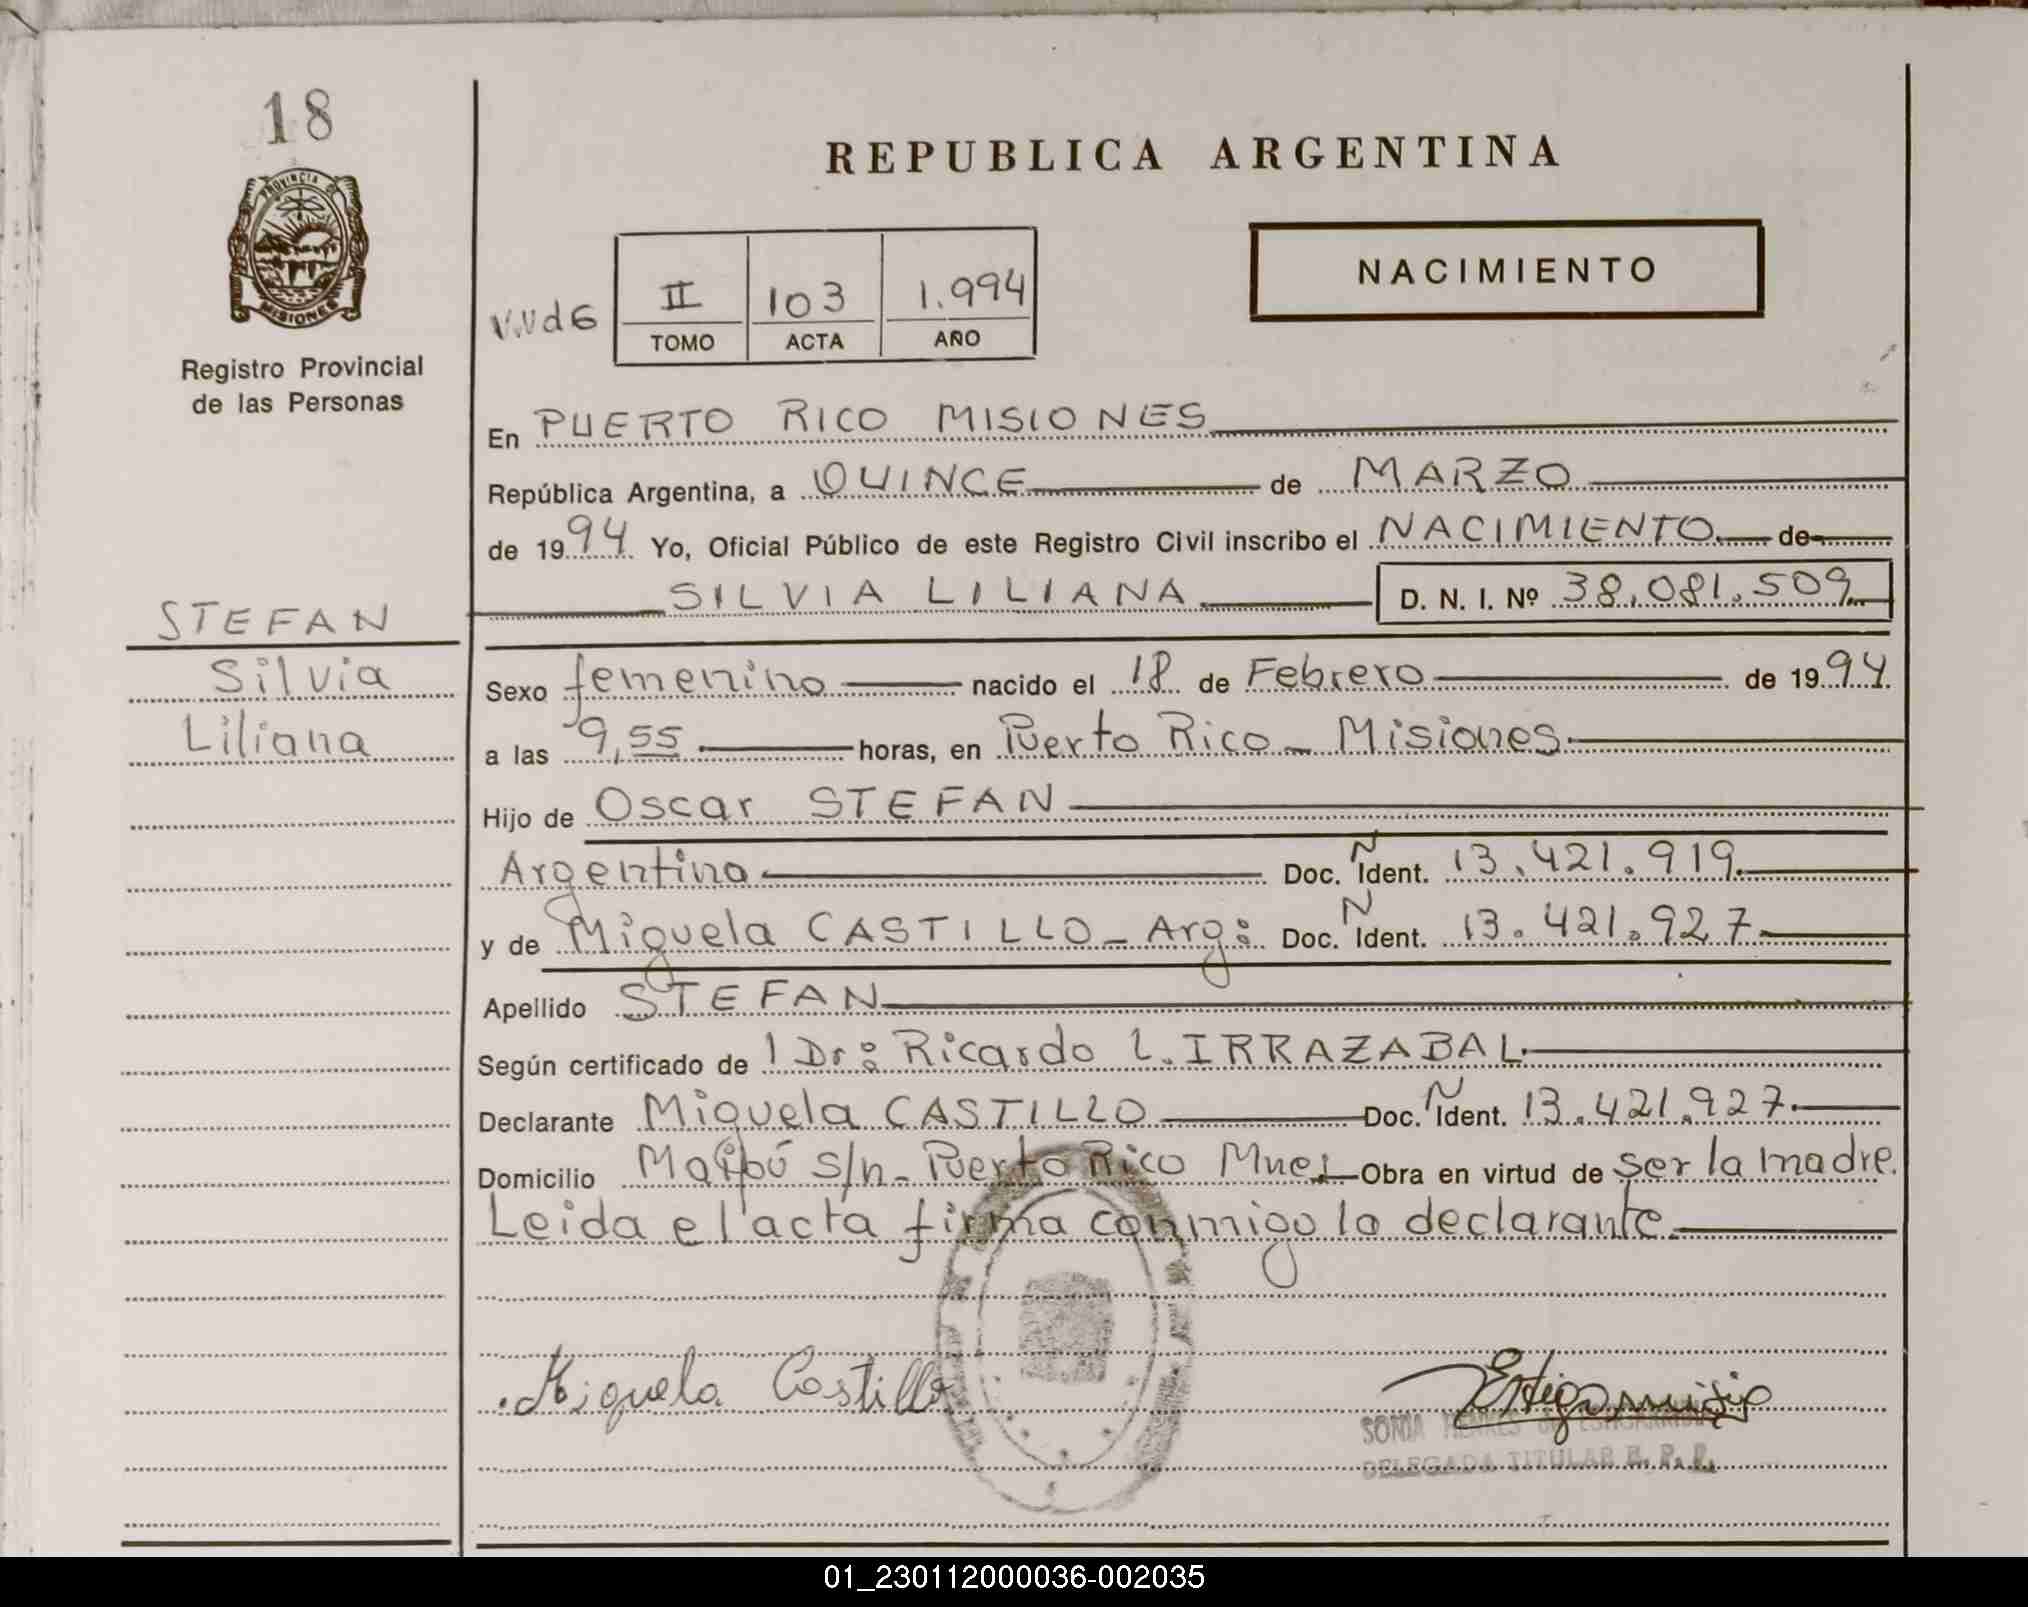 18
PROVINCIA DE
MISIONES
Registro Provincial
de las Personas
STEFAN
Silvia
Liliana
REPUBLICA ARGENTINA
NACIMIENTO
II 103 1.994
TOMO ACTA AÑO
En PUERTO RICO MISIONES
República Argentina, a QUINCE de MARZO
de 1994 Yo, Oficial Público de este Registro Civil inscribo el NACIMIENTO de
SILVIA LILIANA D. N. I. Nº 38.081.509
Sexo femenino nacido el 18 de Febrero de 1994
a las 9,55 horas, en Puerto Rico - Misiones.
Hijo de Oscar STEFAN
Argentino Doc. Ñ Ident. 13.421.919
y de Miguela CASTILLO - Arg: Doc. Ñ Ident. 13.421.927
Apellido STEFAN
Según certificado de l Dr: Ricardo L. IRRAZABAL
Declarante Miguela CASTILLO Doc. Ñ Ident. 13.421.927
Domicilio Maipú s/n - Puerto Rico Mnes Obra en virtud de ser la madre.
Leida el acta firma conmigo la declarante.
Miguela Castillo
SONIA
DELEGADA TITULAR R. P. P.
01_230112000036-002035